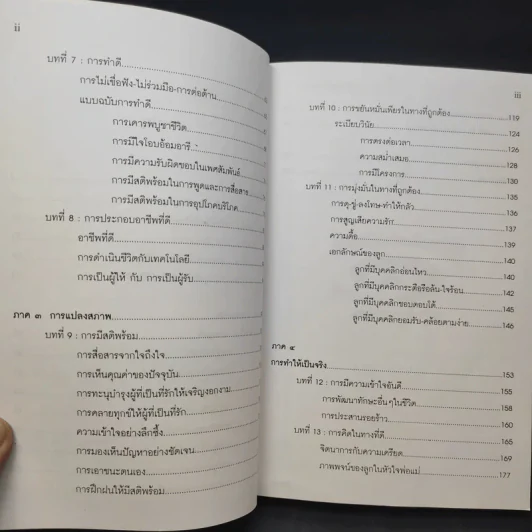 ii
บทที่ 7 : การทำดี
การไม่เชื่อฟัง-ไม่ร่วมมือ-การต่อต้าน
แบบฉบับการทำดี
การเคารพบูชาชีวิต
การมีใจโอบอ้อมอารี
การมีความรับผิดชอบในเพศสัมพันธ์
การมีสติพร้อมในการพูดและการสื่อสาร
การมีสติพร้อมในการอุปโภคบริโภค
บทที่ 8 : การประกอบอาชีพที่ดี
อาชีพที่ดี
การดำเนินชีวิตกับเทคโนโลยี
การเป็นผู้ให้ กับ การเป็นผู้รับ
ภาค ๓ การแปลงสภาพ
บทที่ 9 : การมีสติพร้อม
การสื่อสารจากใจถึงใจ
การเห็นคุณค่าของปัจจุบัน
การทะนุบำรุงผู้ที่เป็นที่รักให้เจริญงอกงาม
การคลายทุกข์ให้ผู้ที่เป็นที่รัก
ความเข้าใจอย่างลึกซึ้ง
การมองเห็นปัญหาอย่างชัดเจน
การเอาชนะตนเอง
การฝึกฝนให้มีสติพร้อม
iii
บทที่ 10 : การขยันหมั่นเพียรในทางที่ถูกต้อง 119
ระเบียบวินัย 124
การตรงต่อเวลา 126
ความสม่ำเสมอ 128
การมีโครงการ 130
บทที่ 11 : การมุ่งมั่นในทางที่ถูกต้อง 135
การดุ-ขู่-ลงโทษ-ทำให้กลัว 136
การสูญเสียความรัก 137
ความดื้อ 139
เอกลักษณ์ของลูก 140
ลูกที่มีบุคคลิกอ่อนไหว 140
ลูกที่มีบุคคลิกกระตือรือล้น-ใจร้อน 142
ลูกที่มีบุคคลิกชอบตอบโต้ 144
ลูกที่มีบุคคลิกยอมรับ-คล้อยตามง่าย 146
ภาค ๔
การทำให้เป็นจริง 153
บทที่ 12 : การมีความเข้าใจอันดี 155
การพัฒนาทักษะอื่นๆในชีวิต 158
การประสานรอยร้าว 160
บทที่ 13 : การคิดในทางที่ดี 165
จิตนาการกับความเครียด 169
ภาพพจน์ของลูกในหัวใจพ่อแม่ 177